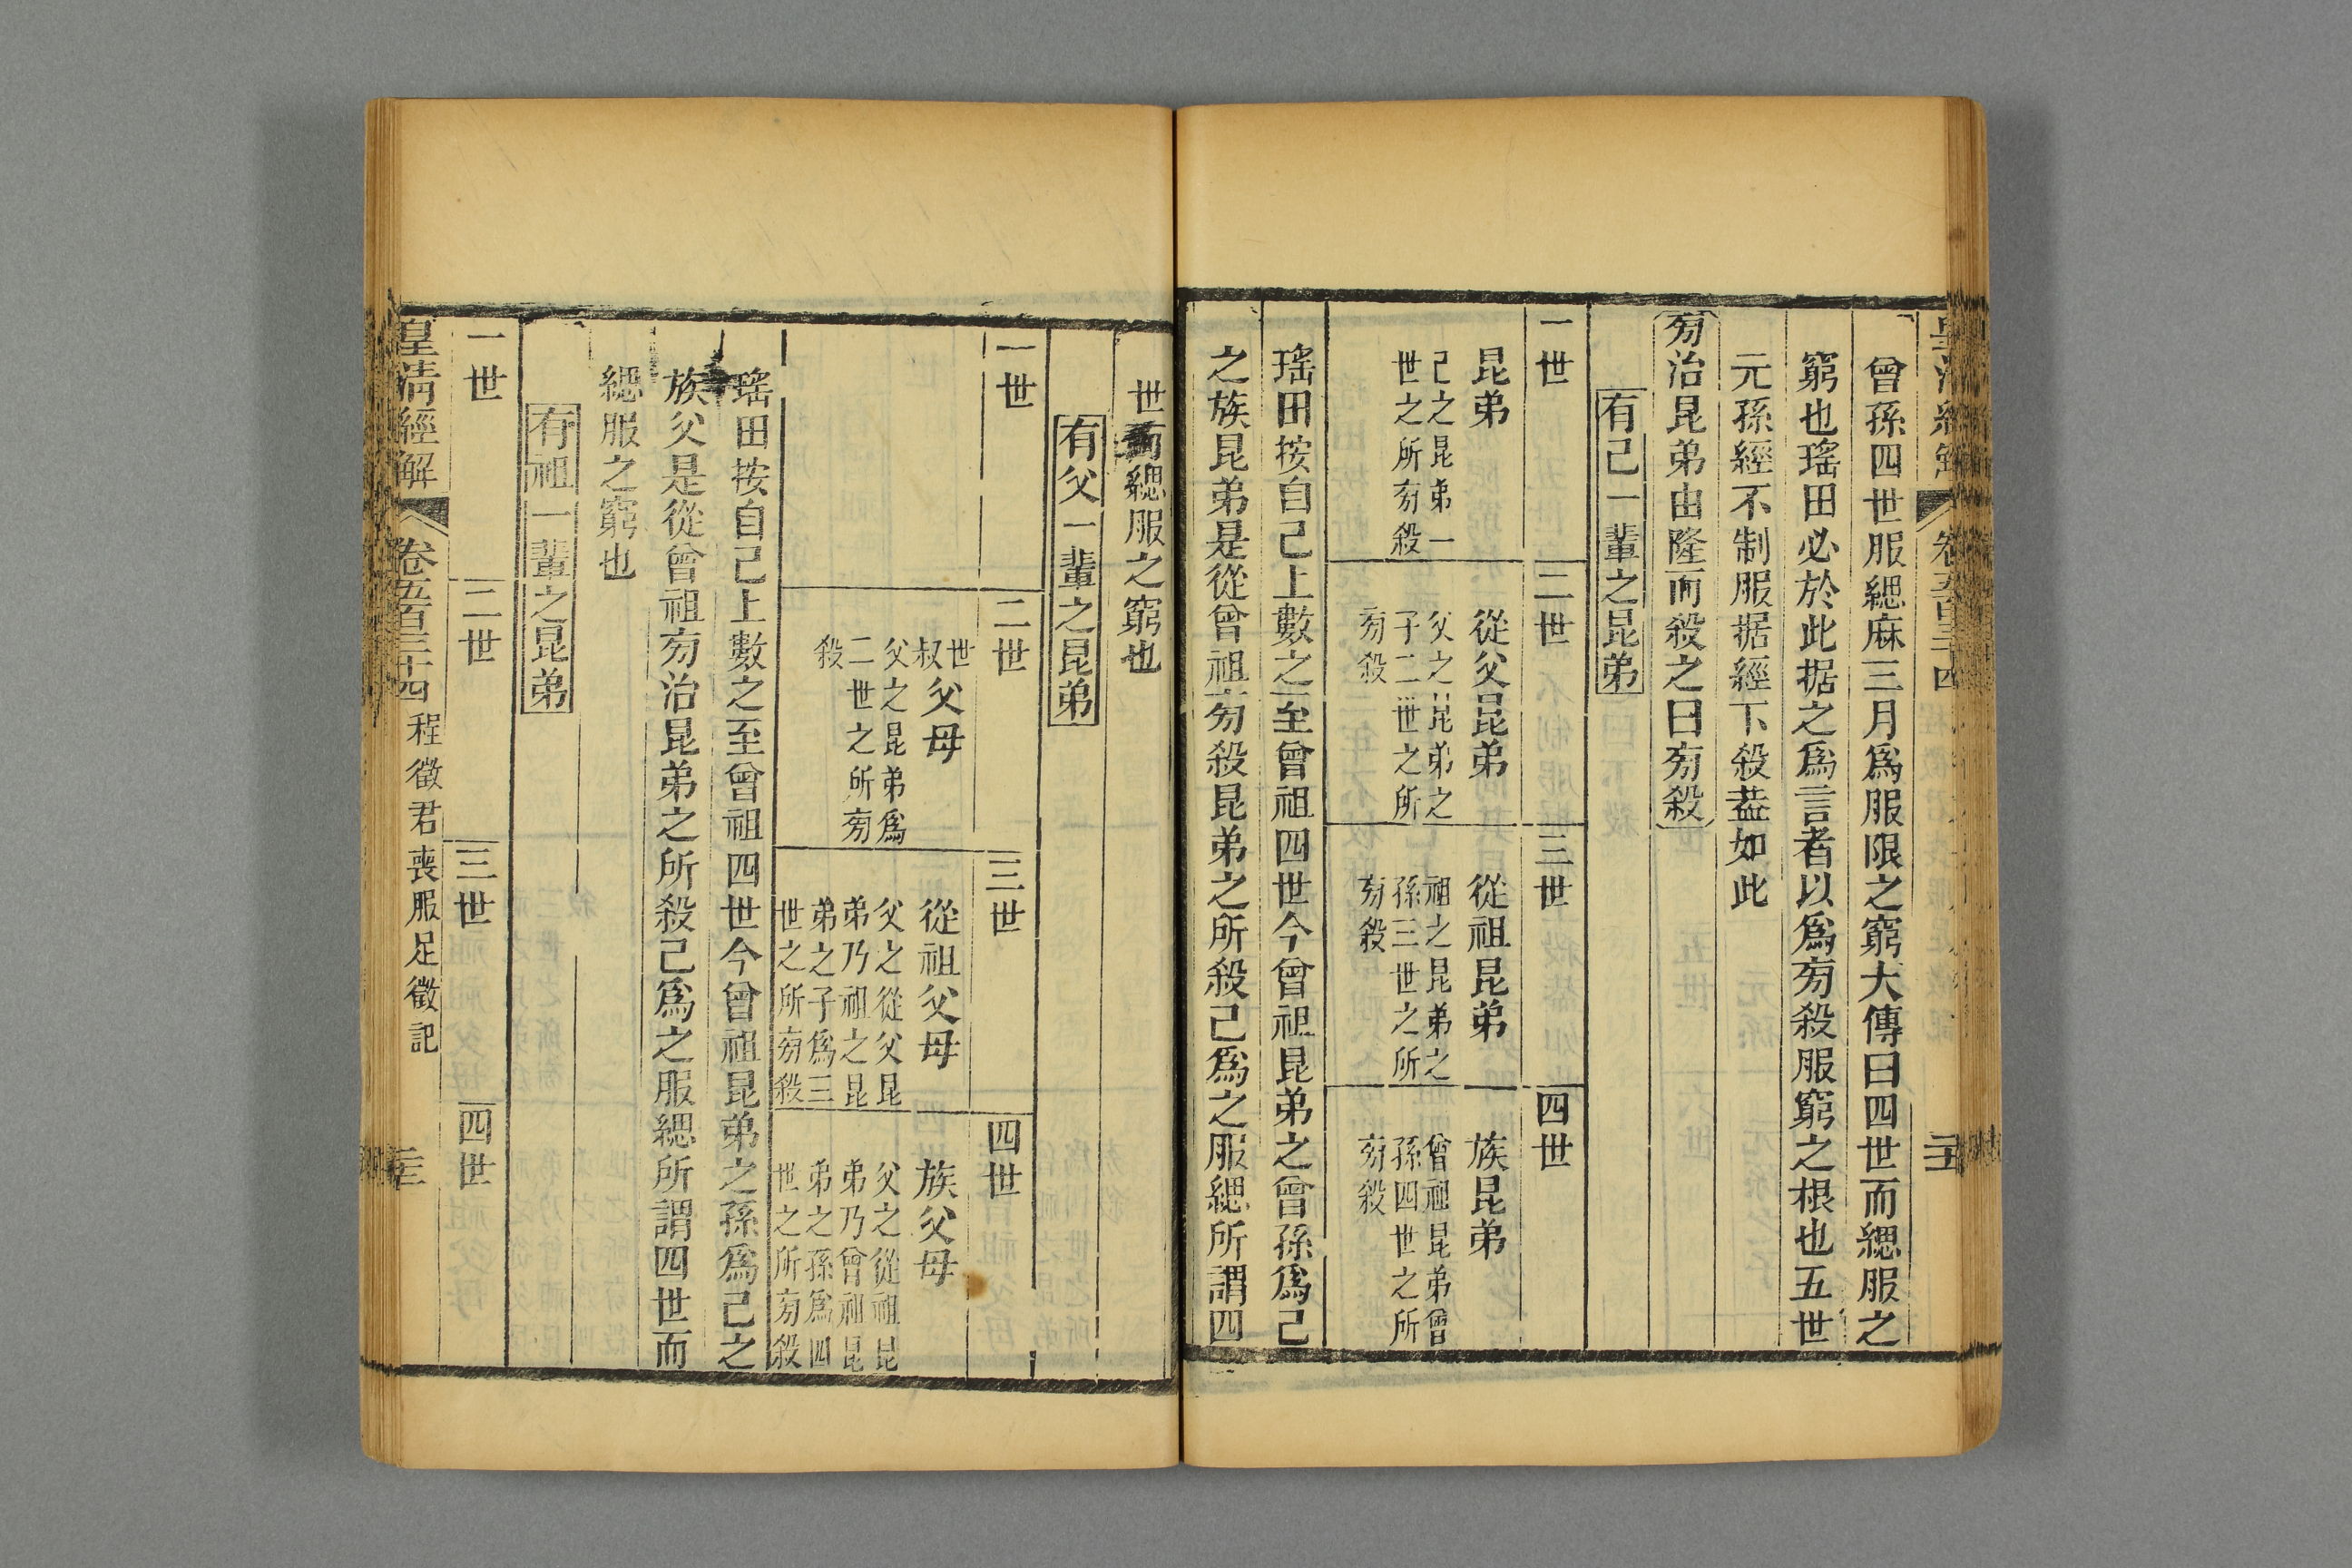 曾孫四世服緦麻三月爲服限之窮大傳曰四世而緦服之
窮也瑤田必於此据之爲言者以爲旁殺服窮之根也五世
元孫經不制服据經下殺葢如此
旁治昆弟由隆而殺之曰旁殺
有己一輩之昆弟
一世
二世
三世
四世
昆弟
己之昆弟一
世之所旁殺
從父昆弟
父之昆弟之
子二世之所
旁殺
從祖昆弟
祖之昆弟之
孫三世之所
旁殺
族昆弟
曾祖昆弟曾
孫四世之所
旁殺
瑤田按自己上數之至曾祖四世今曾祖昆弟之曾孫爲己
之族昆弟是從曾祖旁殺昆弟之所殺己爲之服緦所謂四
世而緦服之窮也
有父一輩之昆弟
一世
二世
三世
四世
世叔父母
父之昆弟爲
二世之所旁
殺
從祖父母
父之從父昆
弟乃祖之昆
弟之子爲三
世之所旁殺
族父母
父之從祖昆
弟乃曾祖昆
弟之孫爲四
世之所旁殺
瑤田按自己上數之至曾祖四世今曾祖昆弟之孫爲己之
族父是從曾祖旁治昆弟之所殺己爲之服緦所謂四世而
緦服之窮也
有祖一輩之昆弟
一世
二世
三世
四世
皇清經解
卷五百三十四
程徵君喪服足徵記